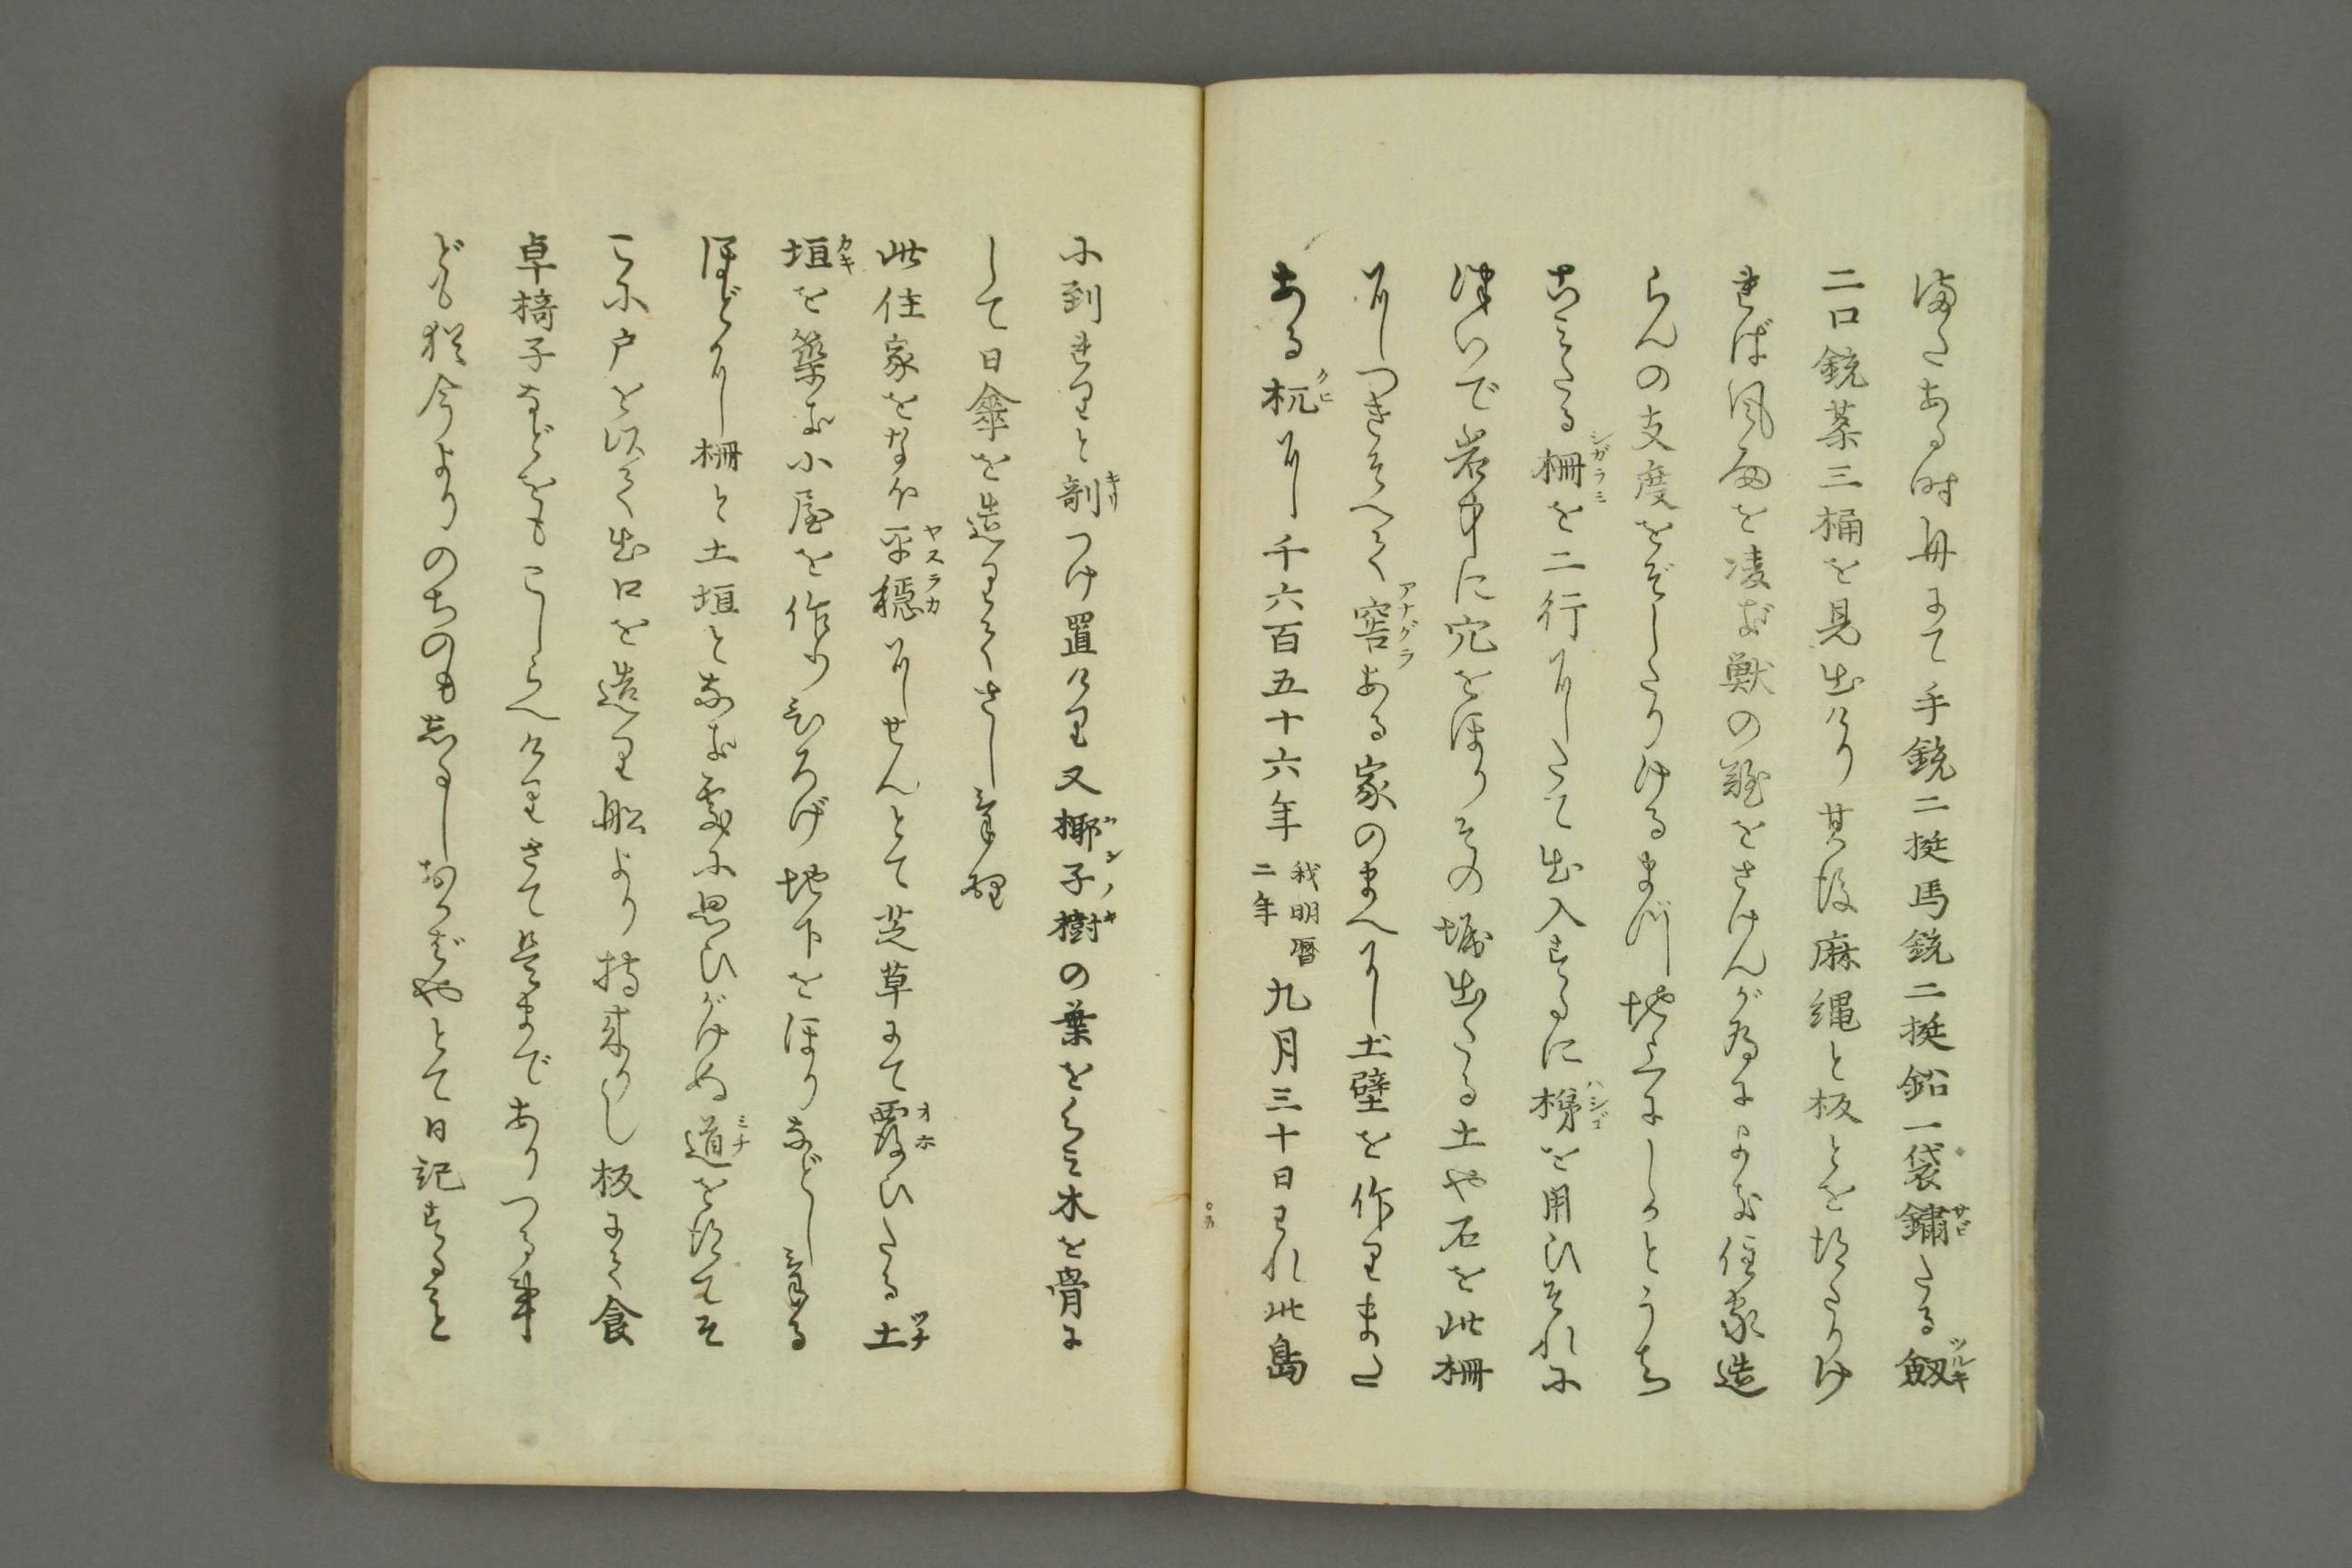 またある時舟にて手銃二挺馬銃二挺鉛一袋鏽たる劔
二口銃薬三桶を見出けり其後麻縄と板とを得たりけ
れば風雨を凌ぎ獣の難をさけんが為によき住家造
らんの支度をぞしたりけるまづ地上にしかとうち
こみたる柵を二行にたて出入するに梯を用ひそれに
つゐで岩中に穴をほりその堀出たる土や石を此柵
につきそへて窖ある家のまへに土壁を作りまた
ある杭に千六百五十六年我明暦二年九月三十日われ此島
に到れりと剞つけ置けり又椰子樹の葉をくみ木を骨に
して日傘を造りてさし
此住家をなほ平穏にせんとて芝草にて覆ひたる土
垣を築き小屋を作りひろげ地下をほりなどし
ほどに柵と土垣となき處に思ひがけぬ道を得てそ
こに戸を設て出口を造り船より持来りし板にて食
卓椅子などをもこしらへけりさて是まてありつる事
ども猶今よりのちのも志るしおかばやとて日記すること